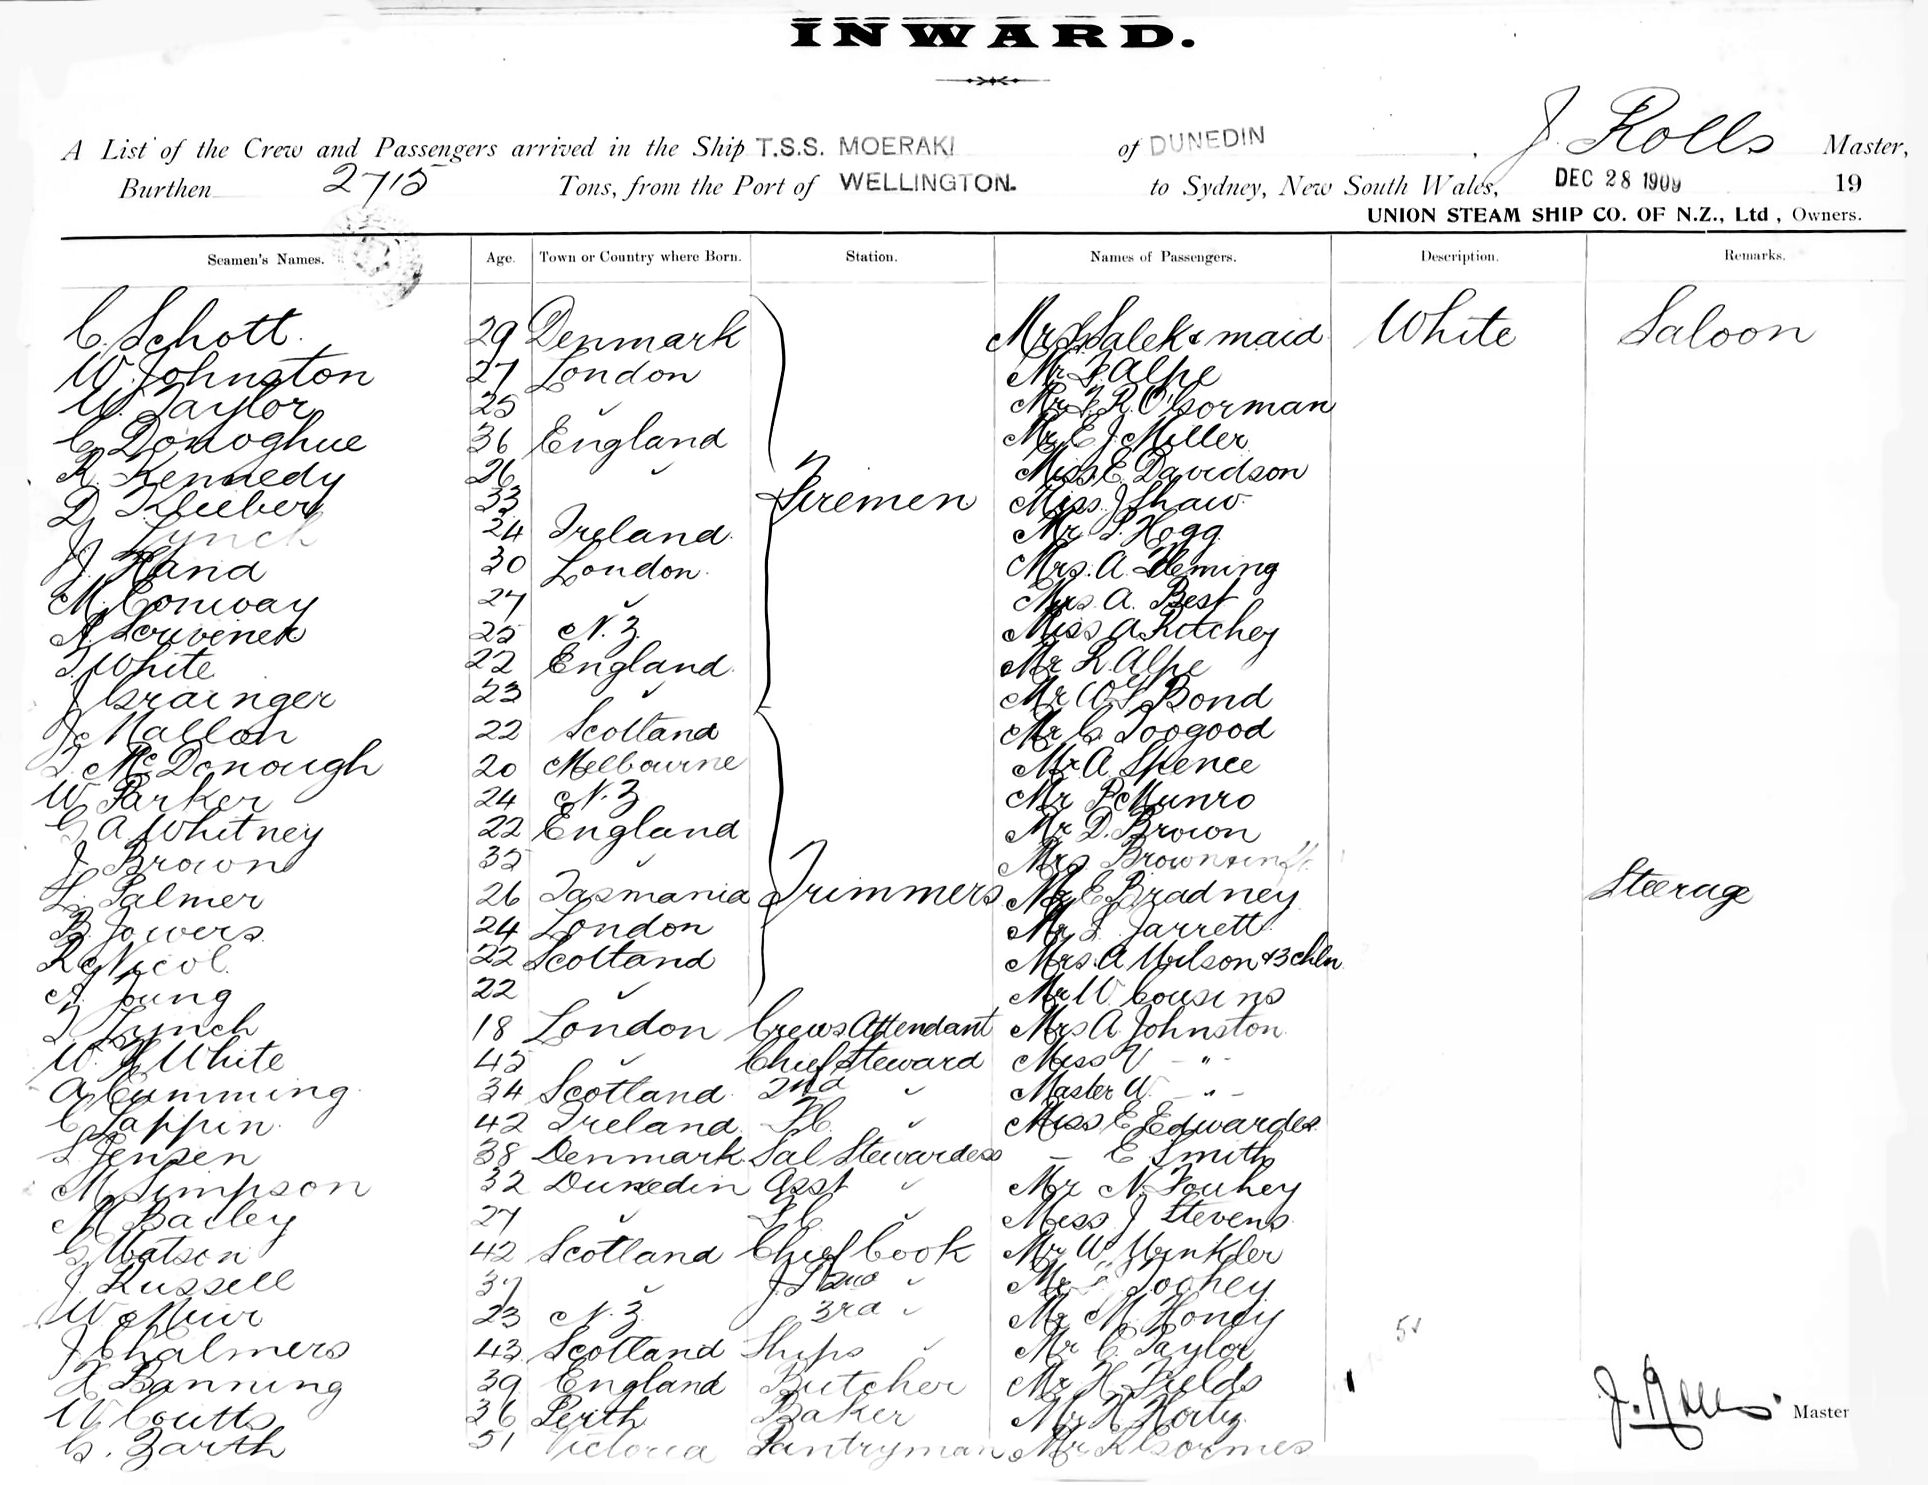 INWARD.
A List of the Crew and Passengers arrived in the Ship T.S.S. MOERAKI of DUNEDIN, J. Rolls Master,
Burthen 2715 Tons, from the Port of WELLINGTON. to Sydney, New South Wales, DEC 28 1909 19
UNION STEAM SHIP CO. OF N.Z., Ltd, Owners.
Seamen's Names. Age. Town or Country where Born. Station. Names of Passengers. Description. Remarks.
C. Schott. 29 Denmark Salek & maid White Saloon
W. Johnston 27 London Mr F. Alpe
W. Taylor 25 " Mr F. R. O'Gorman
C Donoghue 36 England Mr E J Miller
R. Kennedy 26 " Miss E Davidson
D Klieber 33 Firemen Miss J Shaw
J Lynch 24 Ireland. Mr Hogg
J. Hand 30 London. Mrs. A. Fleming
M. Conway 27 " Mrs. A. Best
25 N.Z. Miss A Ritchey
T. White 22 England. Mr R. Alpe
J Grainger 23 " Mr W Bond
J Mallon 22 Scotland Mr C. Toogood
T. McDonough 20 Melbourne Mr A Spence
W Parker 24 N.Z Mr P Munro
G A Whitney 22 England Mr D. Brown
J. Brown 35 " Mrs Brown & inft.
L. Palmer 26 Tasmania Trimmers Mr E Bradney Steerage
B. Jowers 24 London Mr S. Jarrett
R Nicol. 22 Scotland Mrs. A Wilson & 3 chln
A. Young 22 " Mr W Cousins
T Lynch 18 London Crews Attendant Mrs A Johnston
W. H. White 45 " Chief Steward Miss V - " -
A Cumming. 34 Scotland 2nd " Master W. - " -
C Tappin. 42 Ireland. F.C. " Miss E Edwardes
S Jensen 38 Denmark. Sal Stewardess – E Smith
M Simpson 32 Dunedin Asst " Mr N. Fouhey
M Bailey 27 " F.C. " Miss J Stevens
G Watson 42 Scotland Chief Cook Mr W. Winkler
J Russell 37 " 2nd " Mr Toohey
W Muir 23 N.Z. 3rd " Mr M. Honey
J Chalmers 43 Scotland Ships " Mr C. Taylor
Banning 39 England Butcher Mr H. Fields
W Coutts 36 Perth Baker Mr H
G. Zarth 31 Victoria Pantryman Mr
J. Rolls Master